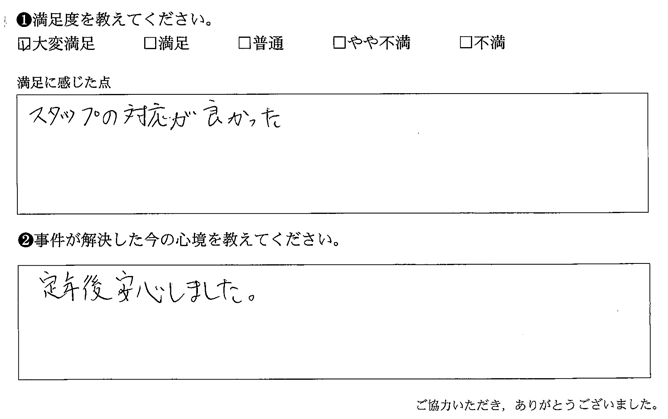 ❶満足度を教えてください。
☑大変満足 □満足 □普通 □やや不満 □不満
満足に感じた点
スタッフの対応が良かった
❷事件が解決した今の心境を教えてください。
定年後安心しました。
ご協力いただき，ありがとうございました。